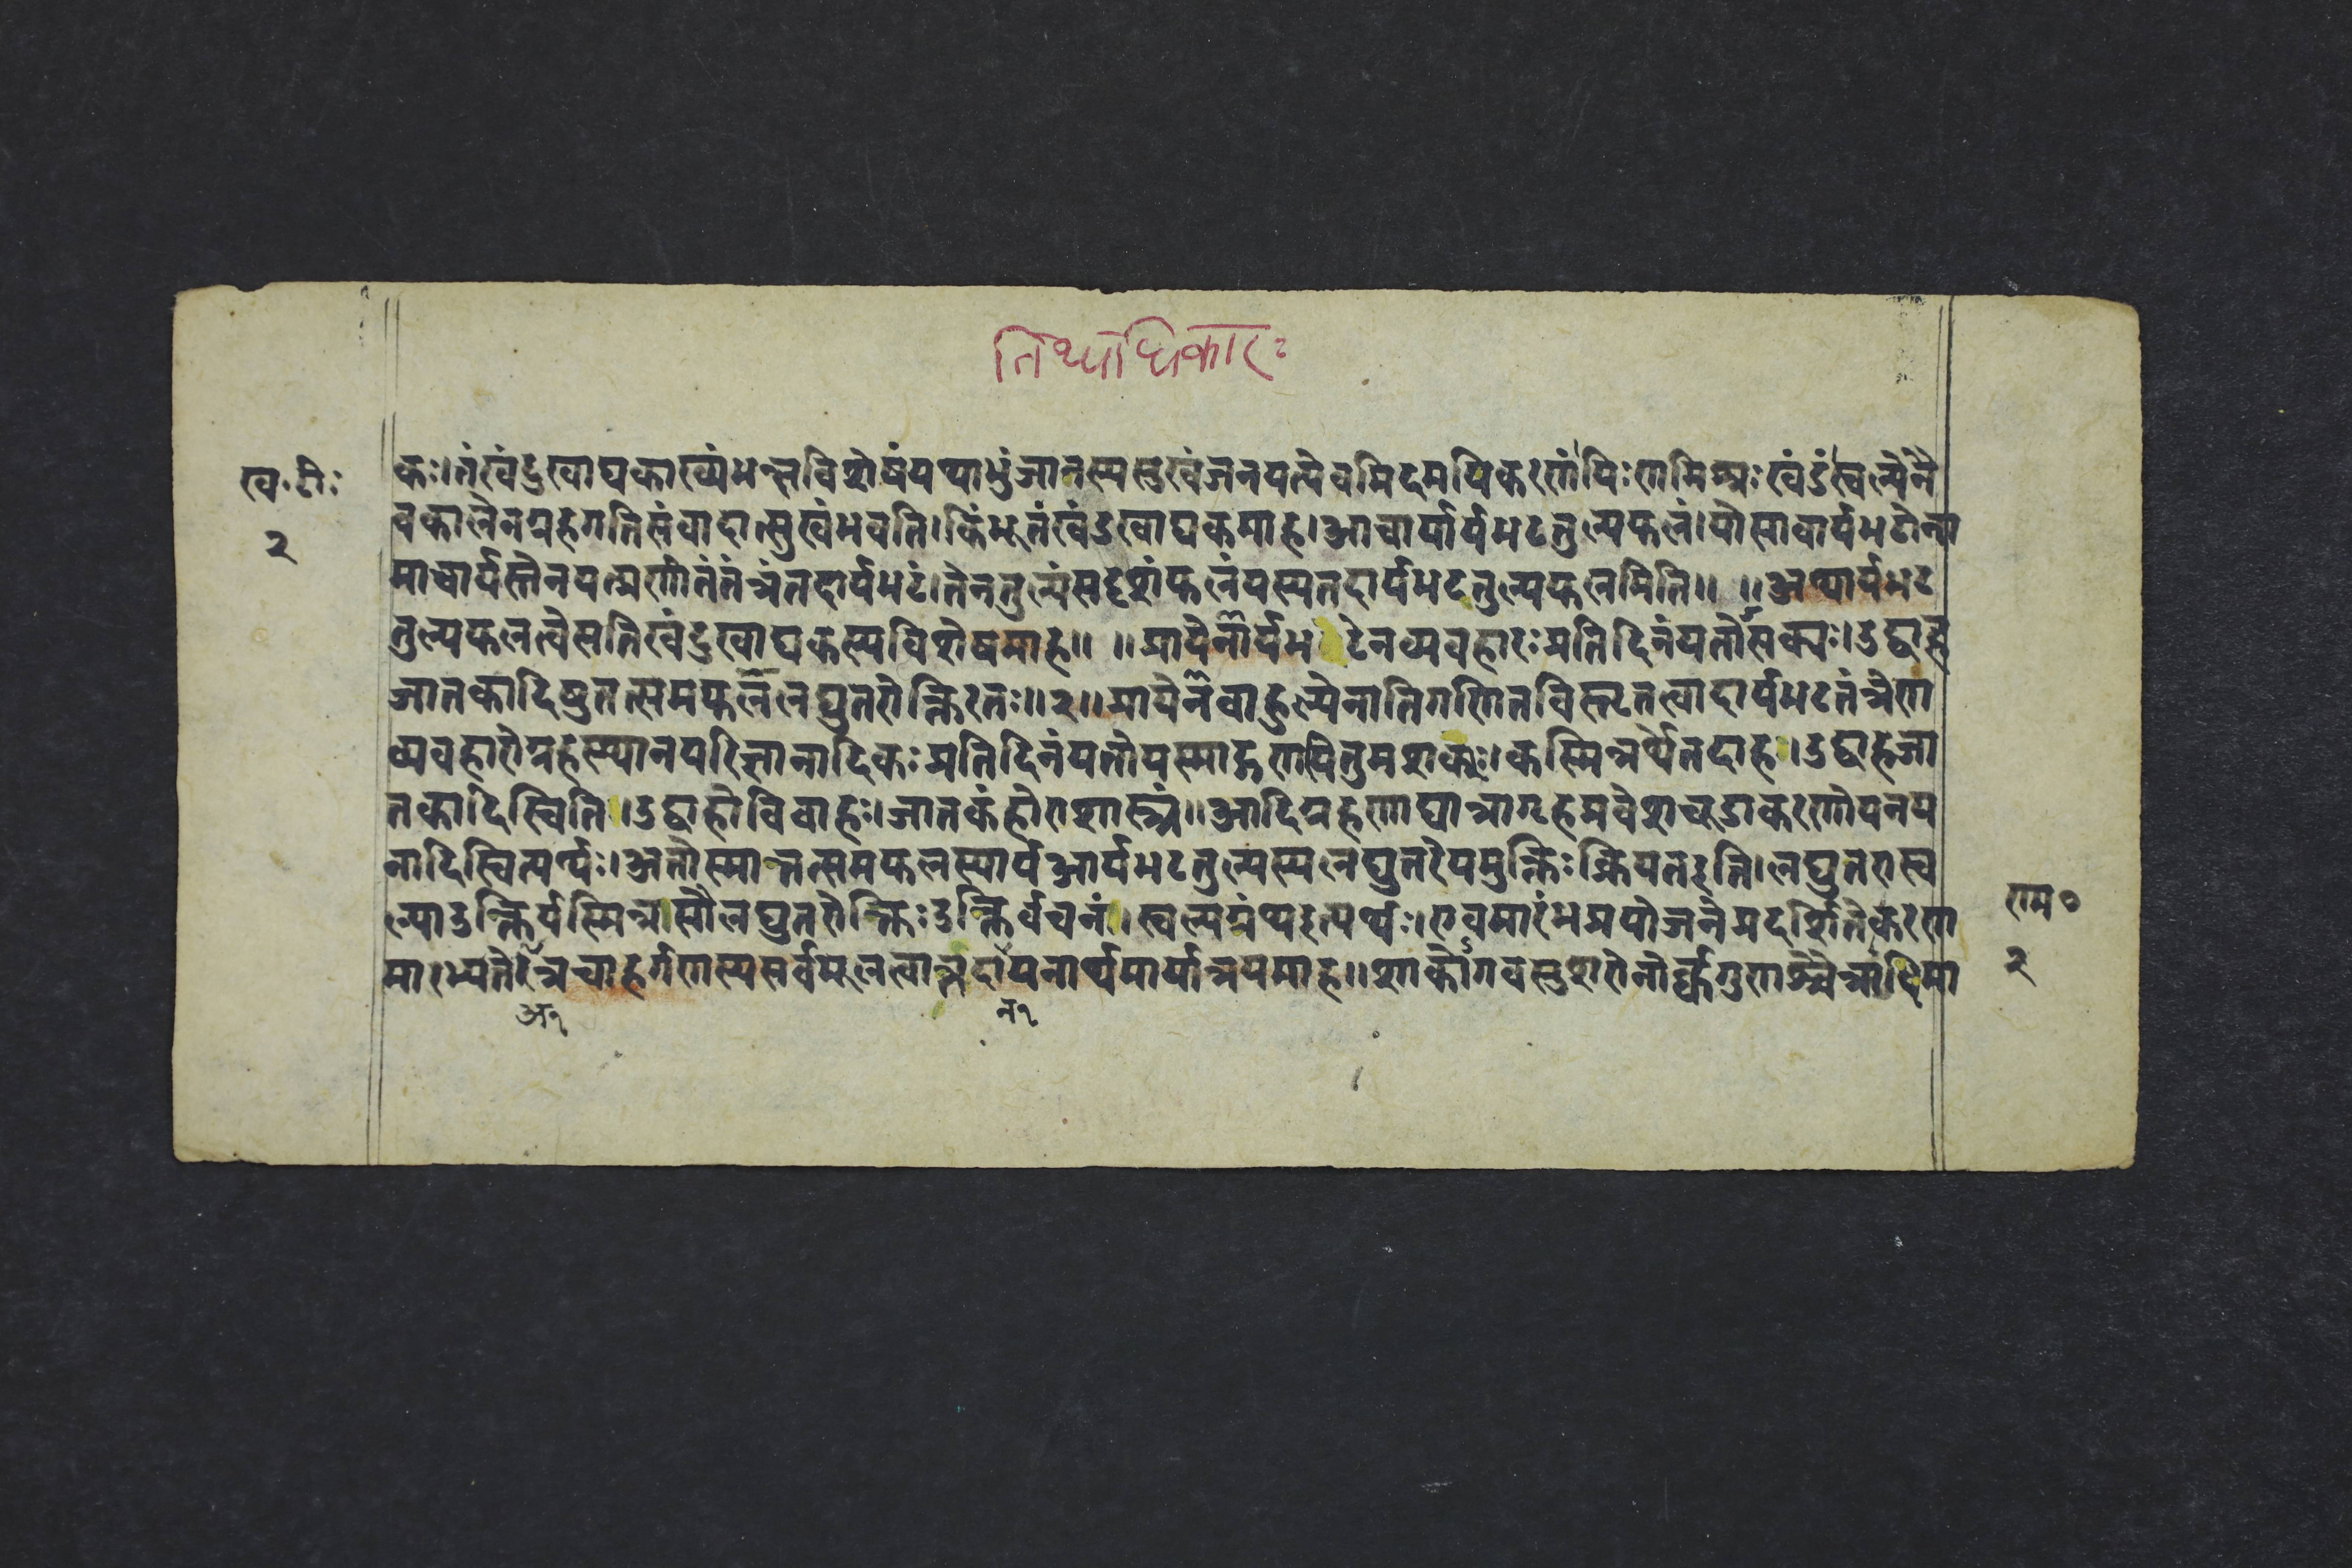 तिथ्याधिकारः
ख॰टी॰
२
कः।तंखंडखाद्यकाख्यंभक्ष्यविशेषंयथाभुंजानस्यसुखंजनयत्येवमिदमपिकरणंपिःणमिश्रःखंडंस्वल्पेनै
वकालेनग्रहगतिसंवादात्सुखंभवति।किंभूतंखंडखाद्यकमाह।आचार्यार्यभटतुल्यफलं।योसावार्यभटोना
माचार्यस्तेनयत्प्रणीतंतंत्रंतदार्यभटं।तेनतुल्यंसदृशंफलंयस्यतदार्यभटतुल्यफलमिति॥ ॥अथार्यभट
तुल्यफलत्वेसतिखंडखाद्यकस्यविशेषमाह॥ ॥प्रायेणार्यभटेनव्यवहारःप्रतिदिनंयतोसक्यः।उद्वाह
जातकादिषुतत्समफललघुतरोक्तिरतः॥२॥प्रायेनबाहुल्येनातिगणितविस्तृतत्वादार्यभटतंत्रेण
व्यवहारोग्रहस्थानपरिज्ञानादिकःप्रतिदिनंयतोयस्माद्गणयितुमशक्यः।कस्मिन्नर्थेतदाह।उद्वाहजा
तकादिस्विति।उद्वाहोविवाहः।जातकंहोराशास्त्रं॥आदिग्रहणाद्यात्रागृहप्रवेशचूडाकरणोपनय
नादिस्वित्यर्थः।अतोस्मात्तत्समफलस्यार्यआर्यभटतुल्यस्यलघुतरेयमुक्तिःक्रियतइति।लघुतरास्व
ल्पाउक्तिर्यस्मिन्नसौलघुतरोक्तिःउक्तिर्वचनं।स्वल्पग्रंथइत्यर्थः।एवमारंभप्रयोजनेप्रदर्शितेकरण
मारभ्यते।तत्रचाहर्गणस्यसर्वमूलत्वात्तदायनार्थमार्यात्रयमाह॥शाकोगवसुशरोनोर्क्कगुणश्चैत्रादिमा
अ१
न१
राम०
२